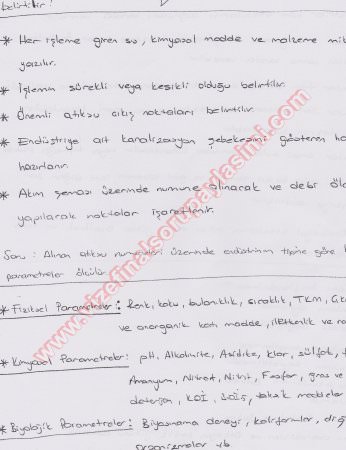 belirtilir.
* Her işleme giren su, kimyasal madde ve malzeme
yazılır.
* İşlemin sürekli veya kesikli olduğu belirtilir.
* Önemli atıksu çıkış noktaları belirtilir.
* Endüstriye ait kanalizasyon şebekesini gösteren
hazırlanır.
* Akım şeması üzerinde numune alınacak ve debi
yapılacak noktalar işaretlenir.
Soru: Alınan atıksu numuneleri üzerinde endüstrinin tipine göre
parametreler ölçülür.
* Fiziksel Parametreler: Renk, koku, bulanıklık, sıcaklık, TKM,
ve anorganik katı madde, iletkenlik ve
* Kimyasal Parametreler: pH, Alkalinite, Asidite, klor, sülfat,
Amonyum, Nitrat, Nitrit, Fosfor, gres ve
deterjan, KOİ, BOİ5, toksik maddeler
* Biyolojik Parametreler: Biyodeneme deneyi, koliformlar,
organizmalar vb.
www.vizefinalsorupaylasimi.com